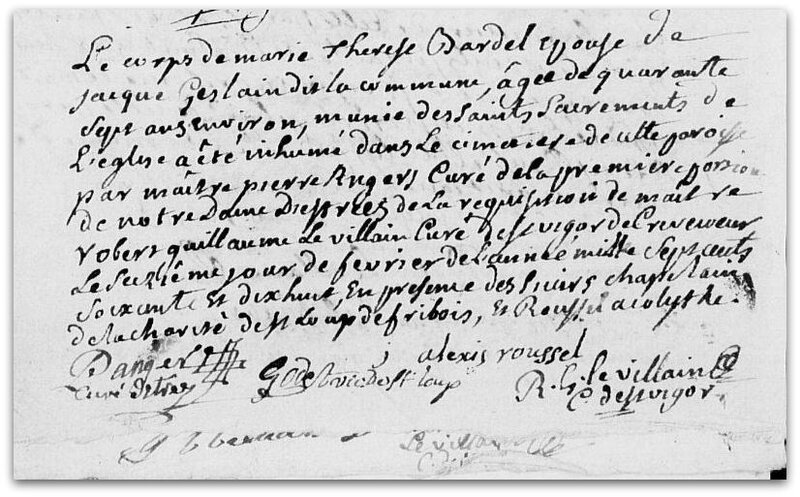 Le corps de marie therese Bardel epouse de
jacque Geslain dit la commune, âgée de quarante
sept ans environ, munie des saints sacrements de
L'eglise a été inhumé dans Le cimetiere de cette paroisse
par maître pierre Angers Curé de la premiere portion
de notre Dame Destrées de la requisition de maître
robert guillaume Le villain Curé de st vigor de Crevecoeur
Le seziême jour de fevrier de L'année mille sept cents
soixante et dix huit, En présence des sieurs chapelain
de la charité de st Loup de fribois, et Roussel acolythe.
alexis roussel
P angers
curé destrées
st loup
R. G. le villain
C de st vigor
Le villain